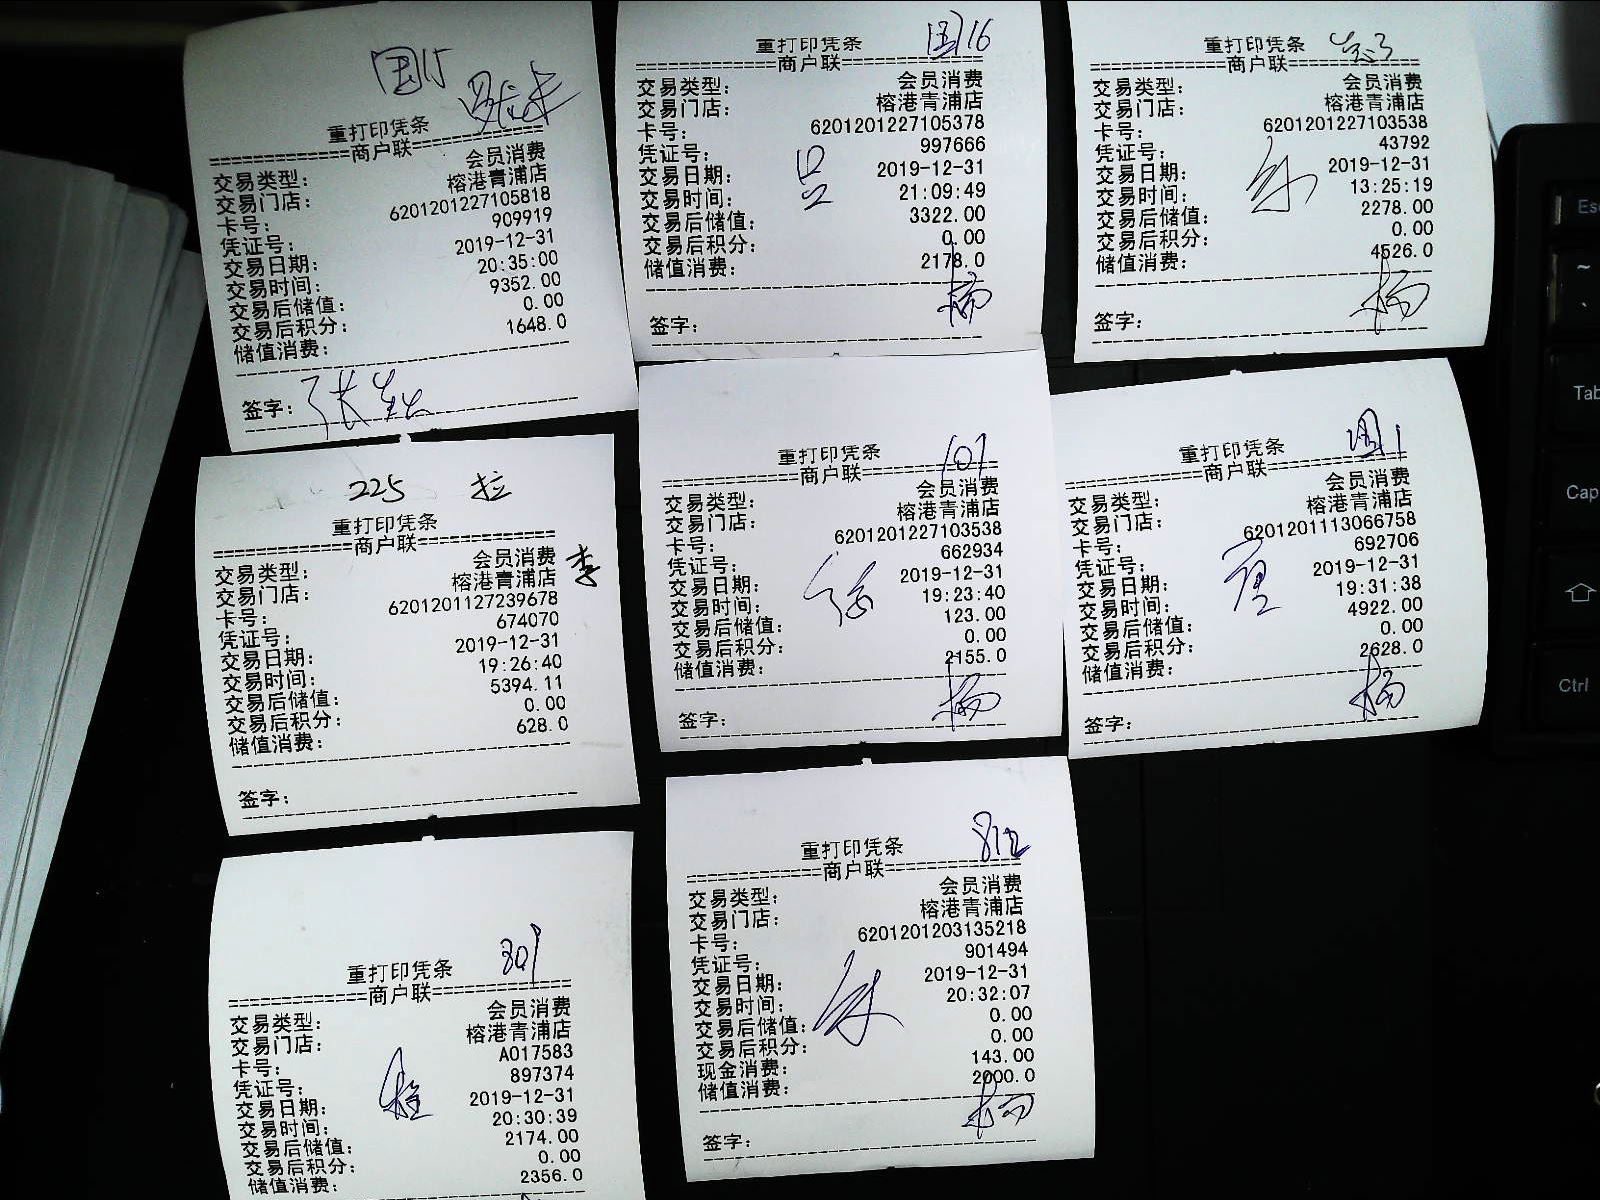 国15
重打印凭条
=============商户联=============
交易类型: 会员消费
交易门店: 榕港青浦店
卡号: 6201201227105818
凭证号: 909919
交易日期: 2019-12-31
交易时间: 20:35:00
交易后储值: 9352.00
交易后积分: 0.00
储值消费: 1648.0
签字:
国16
重打印凭条
=============商户联=============
交易类型: 会员消费
交易门店: 榕港青浦店
卡号: 6201201227105378
凭证号: 997666
交易日期: 2019-12-31
交易时间: 21:09:49
交易后储值: 3322.00
交易后积分: 0.00
储值消费: 2178.0
吕
杨
签字:
重打印凭条
=============商户联=============
交易类型: 会员消费
交易门店: 榕港青浦店
卡号: 6201201227103538
凭证号: 43792
交易日期: 2019-12-31
交易时间: 13:25:19
交易后储值: 2278.00
交易后积分: 0.00
储值消费: 4526.0
杨
签字:
225 拉
重打印凭条
=============商户联=============
交易类型: 会员消费
李
交易门店: 榕港青浦店
卡号: 6201201127239678
凭证号: 674070
交易日期: 2019-12-31
交易时间: 19:26:40
交易后储值: 5394.11
交易后积分: 0.00
储值消费: 628.0
签字:
107
重打印凭条
=============商户联=============
交易类型: 会员消费
交易门店: 榕港青浦店
卡号: 6201201227103538
凭证号: 662934
交易日期: 2019-12-31
交易时间: 19:23:40
交易后储值: 123.00
交易后积分: 0.00
储值消费: 2155.0
杨
签字:
国1
重打印凭条
=============商户联=============
交易类型: 会员消费
交易门店: 榕港青浦店
卡号: 6201201113066758
凭证号: 692706
交易日期: 2019-12-31
交易时间: 19:31:38
交易后储值: 4922.00
交易后积分: 0.00
储值消费: 2628.0
杨
签字:
801
重打印凭条
=============商户联=============
交易类型: 会员消费
交易门店: 榕港青浦店
卡号: A017583
凭证号: 897374
交易日期: 2019-12-31
交易时间: 20:30:39
交易后储值: 2174.00
交易后积分: 0.00
储值消费: 2356.0
812
重打印凭条
=============商户联=============
交易类型: 会员消费
交易门店: 榕港青浦店
卡号: 6201201203135218
凭证号: 901494
交易日期: 2019-12-31
交易时间: 20:32:07
交易后储值: 0.00
交易后积分: 0.00
现金消费: 143.00
储值消费: 2000.0
杨
签字:
Esc
~
Tab
Cap
Ctrl